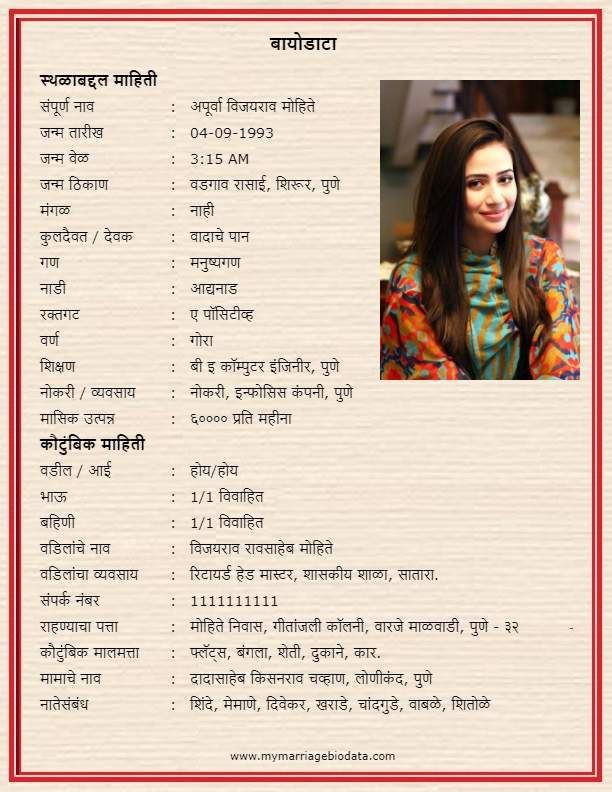 बायोडाटा
स्थळाबद्दल माहिती
संपूर्ण नाव : अपूर्वा विजयराव मोहिते
जन्म तारीख : 04-09-1993
जन्म वेळ : 3:15 AM
जन्म ठिकाण : वडगाव रासाई, शिरूर, पुणे
मंगळ : नाही
कुलदैवत / देवक : वादाचे पान
गण : मनुष्यगण
नाडी : आद्यनाड
रक्तगट : ए पॉसिटीव्ह
वर्ण : गोरा
शिक्षण : बी इ कॉम्पुटर इंजिनीर, पुणे
नोकरी / व्यवसाय : नोकरी, इन्फोसिस कंपनी, पुणे
मासिक उत्पन्न : ६०००० प्रति महीना
कौटुंबिक माहिती
वडील / आई : होय/होय
भाऊ : 1/1 विवाहित
बहिणी : 1/1 विवाहित
वडिलांचे नाव : विजयराव रावसाहेब मोहिते
वडिलांचा व्यवसाय : रिटायर्ड हेड मास्टर, शासकीय शाळा, सातारा.
संपर्क नंबर : 1111111111
राहण्याचा पत्ता : मोहिते निवास, गीतांजली कॉलनी, वारजे माळवाडी, पुणे - ३२ -
कौटुंबिक मालमत्ता : फ्लॅट्स, बंगला, शेती, दुकाने, कार.
मामाचे नाव : दादासाहेब किसनराव चव्हाण, लोणीकंद, पुणे
नातेसंबंध : शिंदे, मेमाणे, दिवेकर, खराडे, चांदगुडे, वाबळे, शितोळे
www.mymarriagebiodata.com